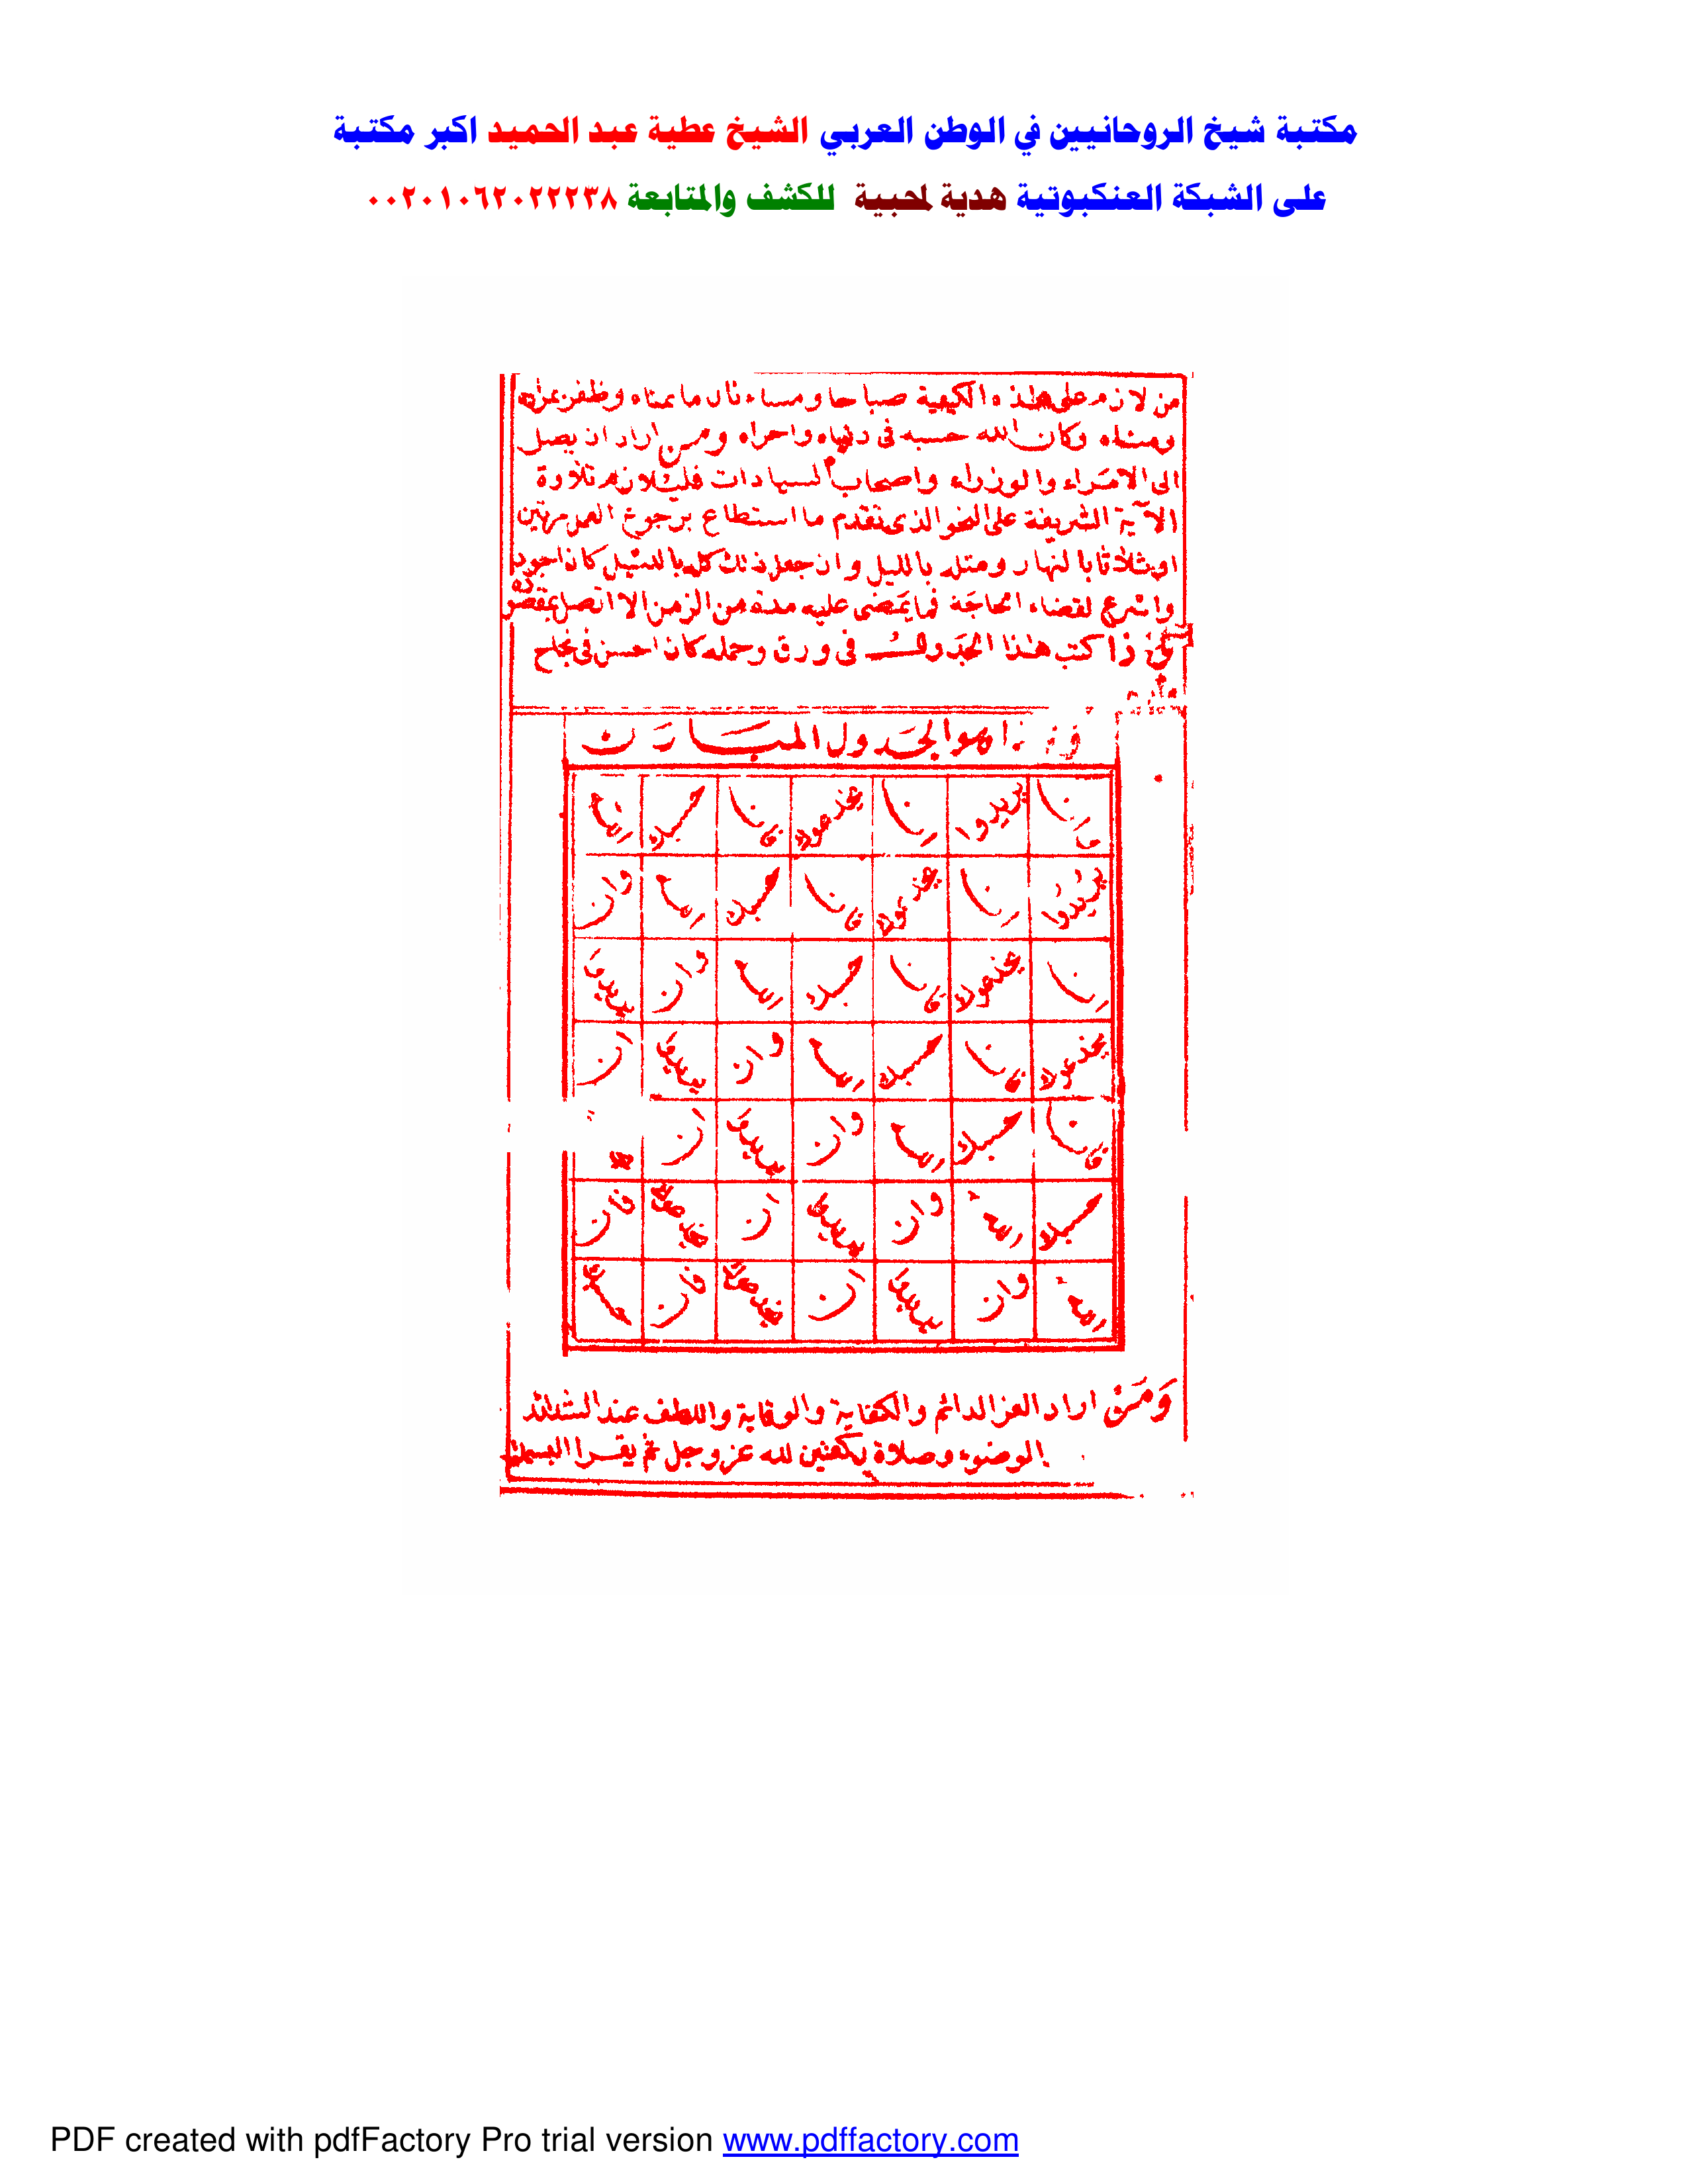 مكتبة شيخ الروحانيين في الوطن العربي الشيخ عطية عبد الحميد اكبر مكتبة
على الشبكة العنكبوتية هدية لمحبية للكشف والمتابعة ٠٠٢٠١٠٦٢٠٢٢٢٣٨
من لازم على هذه الكيفية صباحا ومساء نال ما يمناه وظفر بمراه
ومناه وكان الله حسبه فى دنياه واخراه ومن اراد ان يصل
الى الامراء والوزراء واصحاب السيادات فليلازم تلاوة
الآية الشريفة على النحو الذى تقدم ما استطاع برجوع العمل مرتين
او ثلاثا بالنهار ومثله بالليل وان جعل ذلك كله بالليل كان اجود
واسرع لقضاء الحاجة فما يمضى عليه مدة من الزمن الا اتصل بمقصوده
كتب هذا الجدول فى ورق وحمله كان احسن فى نجاح
هو الجدول المبارك
وان يريدوا ان يخدعوك فان حسبك الله
يريدوا ان يخدعوك فان حسبك الله وان
ان يخدعوك فان حسبك الله وان يريدوا
يخدعوك فان حسبك الله وان يريدوا ان
فان حسبك الله وان يريدوا ان
حسبك الله وان يريدوا ان يخدعوك فان
الله وان يريدوا ان يخدعوك فان حسبك
ومن اراد العز الدائم والكفاية والوقاية واللطف عند الشدائد
الوضوء وصلاة ركعتين لله عز وجل ثم يقرا البسملة
PDF created with pdfFactory Pro trial version www.pdffactory.com